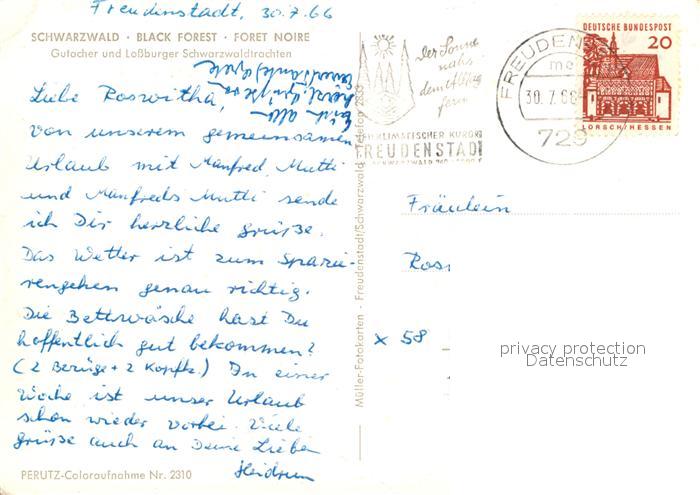 Freudenstadt, 30.7.66
SCHWARZWALD · BLACK FOREST · FORET NOIRE
Gutacher und Loßburger Schwarzwaldtrachten
Liebe Roswitha,
von unserem gemeinsamen
Urlaub mit Manfred Mutti
und Manfreds Mutti sende
ich Dir herzliche Grüße.
Das Wetter ist zum Spazie-
rengehen genau richtig.
Die Bettwäsche hast Du
hoffentlich gut bekommen?
(2 Bezüge + 2 Kopfk.) In einer
Woche ist unser Urlaub
schon wieder vorbei. Viele
Grüße auch an Deine Lieben
Heidrun
PERUTZ-Coloraufnahme Nr. 2310
Müller-Fotokarten · Freudenstadt/Schwarzwald · Telefon
Der Sonne
nah
dem Alltag
fern
HEILKLIMATISCHER KURORT
FREUDENSTADT
FREUDEN
30.7.66
729
DEUTSCHE BUNDESPOST
20
LORSCH/HESSEN
Fräulein
Ros
x 58
privacy protection
Datenschutz